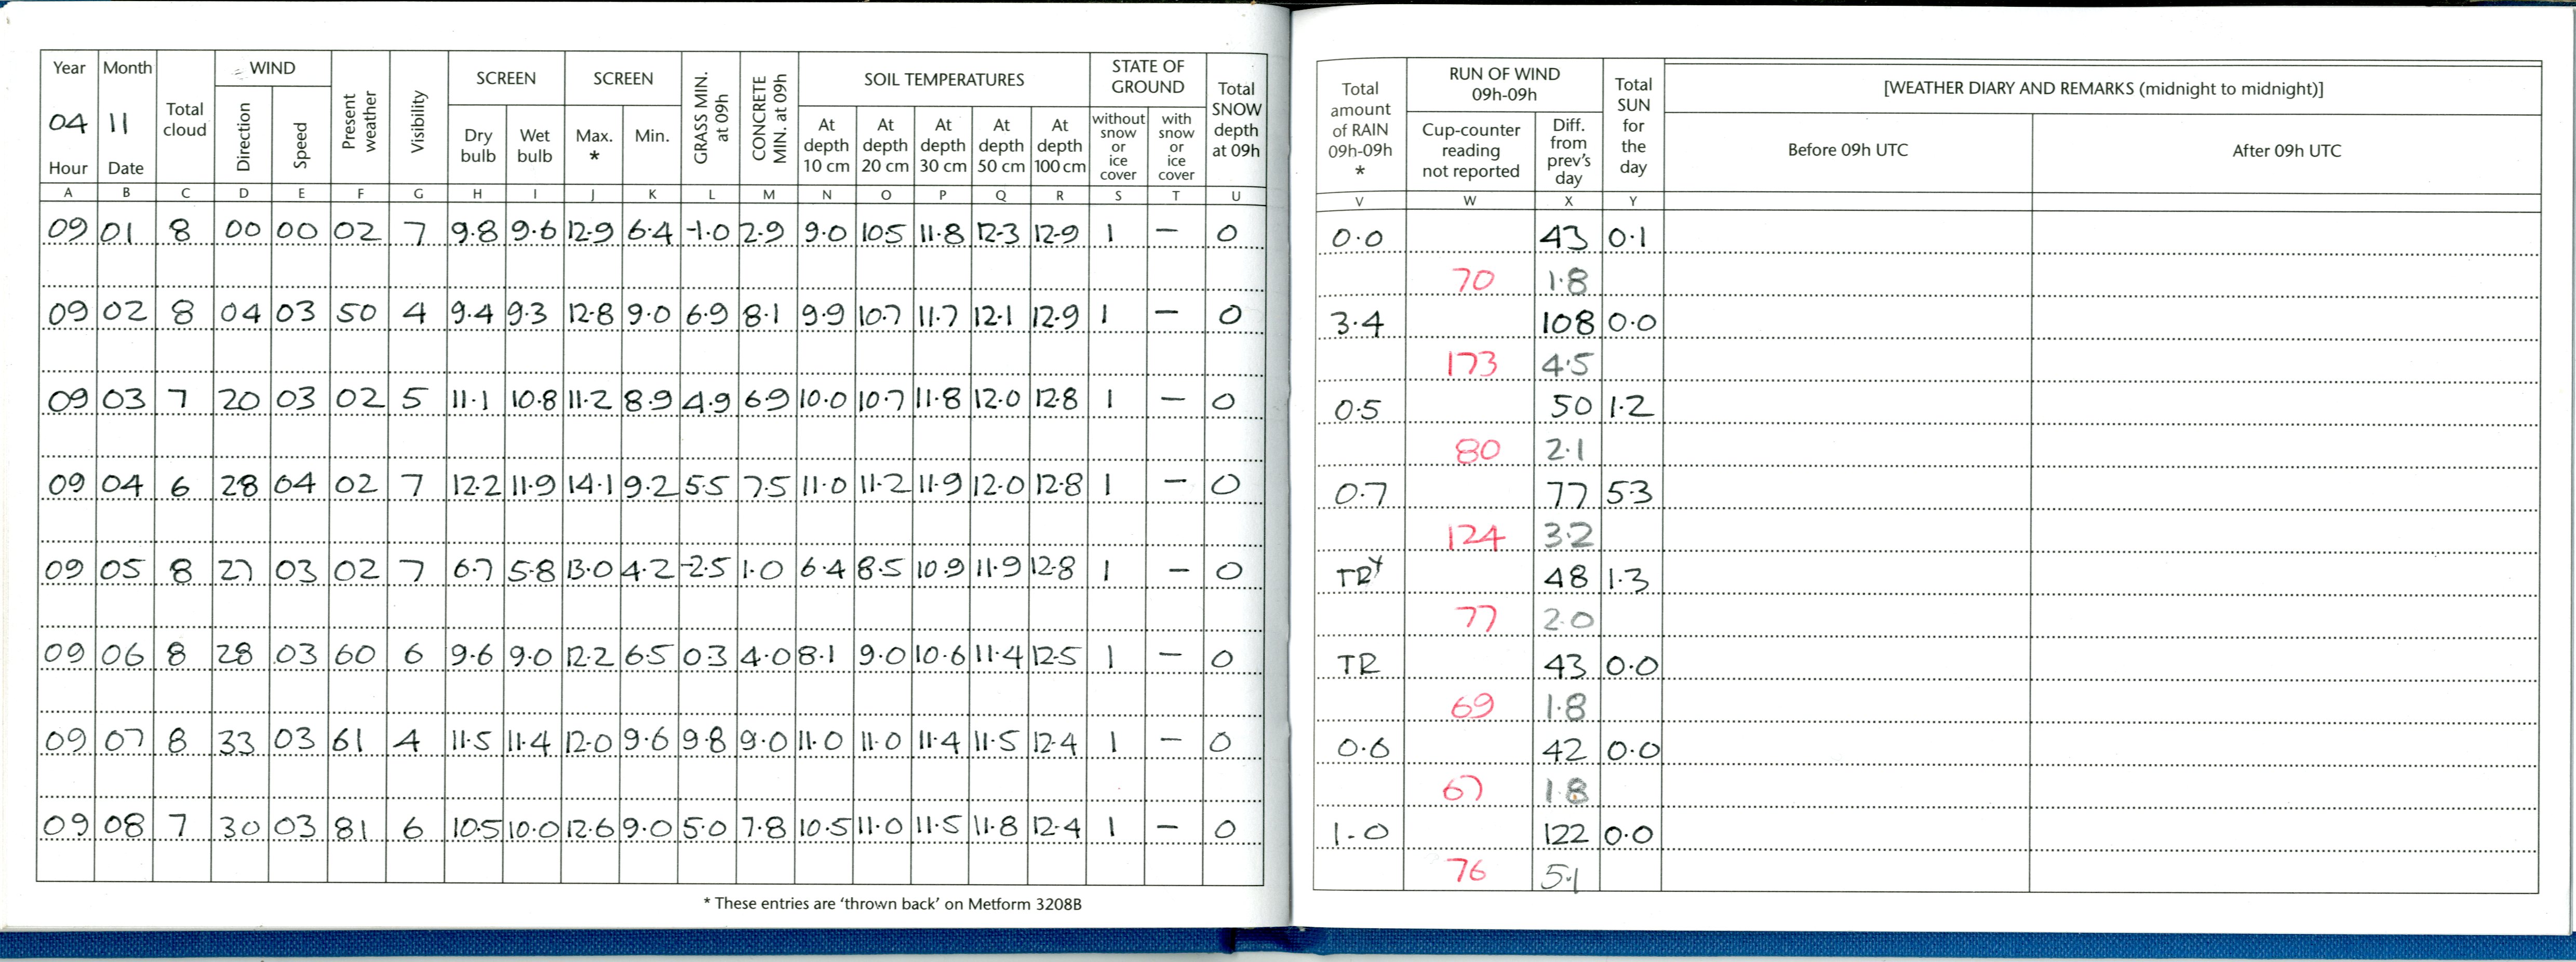 Year Month Total cloud WIND Present weather Visibility SCREEN SCREEN GRASS MIN. at 09h CONCRETE MIN. at 09h SOIL TEMPERATURES STATE OF GROUND Total SNOW depth at 09h
04 11 Direction Speed Dry bulb Wet bulb Max. * Min. At depth 10 cm At depth 20 cm At depth 30 cm At depth 50 cm At depth 100 cm without snow or ice cover with snow or ice cover
Hour Date
A B C D E F G H I J K L M N O P Q R S T U
09 01 8 00 00 02 7 9.8 9.6 12.9 6.4 -1.0 2.9 9.0 10.5 11.8 12.3 12.9 1 — 0
09 02 8 04 03 50 4 9.4 9.3 12.8 9.0 6.9 8.1 9.9 10.7 11.7 12.1 12.9 1 — 0
09 03 7 20 03 02 5 11.1 10.8 11.2 8.9 4.9 6.9 10.0 10.7 11.8 12.0 12.8 1 — 0
09 04 6 28 04 02 7 12.2 11.9 14.1 9.2 5.5 7.5 11.0 11.2 11.9 12.0 12.8 1 — 0
09 05 8 27 03 02 7 6.7 5.8 13.0 4.2 -2.5 1.0 6.4 8.5 10.9 11.9 12.8 1 — 0
09 06 8 28 03 60 6 9.6 9.0 12.2 6.5 0.3 4.0 8.1 9.0 10.6 11.4 12.5 1 — 0
09 07 8 33 03 61 4 11.5 11.4 12.0 9.6 9.8 9.0 11.0 11.0 11.4 11.5 12.4 1 — 0
09 08 7 30 03 81 6 10.5 10.0 12.6 9.0 5.0 7.8 10.5 11.0 11.5 11.8 12.4 1 — 0
* These entries are 'thrown back' on Metform 3208B
Total amount of RAIN 09h-09h * RUN OF WIND 09h-09h Total SUN for the day [WEATHER DIARY AND REMARKS (midnight to midnight)]
Cup-counter reading not reported Diff. from prev's day Before 09h UTC After 09h UTC
V W X Y
0.0 43 0.1
70 1.8
3.4 108 0.0
173 4.5
0.5 50 1.2
80 2.1
0.7 77 5.3
124 3.2
TR 48 1.3
77 2.0
TR 43 0.0
69 1.8
0.6 42 0.0
67 1.8
1.0 122 0.0
76 5.1